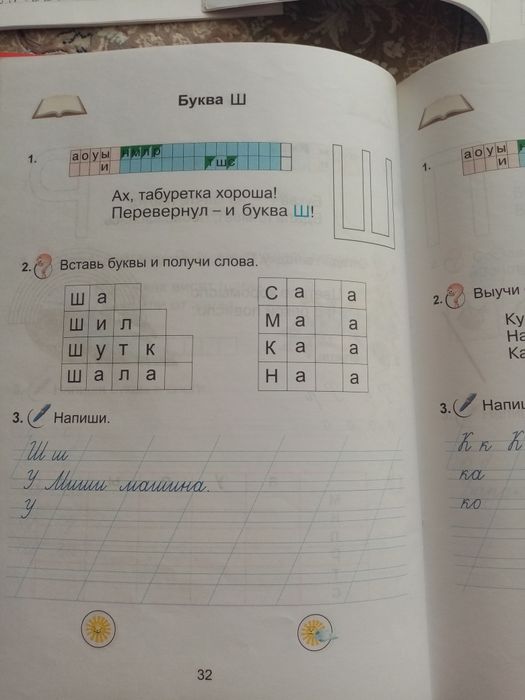 Буква Ш
1.
а о у ы н м л р
и т ш с
Ах, табуретка хороша!
Перевернул – и буква Ш!
2. Вставь буквы и получи слова.
Ш а
Ш и л
Ш у т к
Ш а л а
С а а
М а а
К а а
Н а а
3. Напиши.
Ш ш
У Миши машина.
У
32
1.
а о у ы
и
2. Выучи
Ку
На
Ка
3. Напиш
К к К
ка
ко